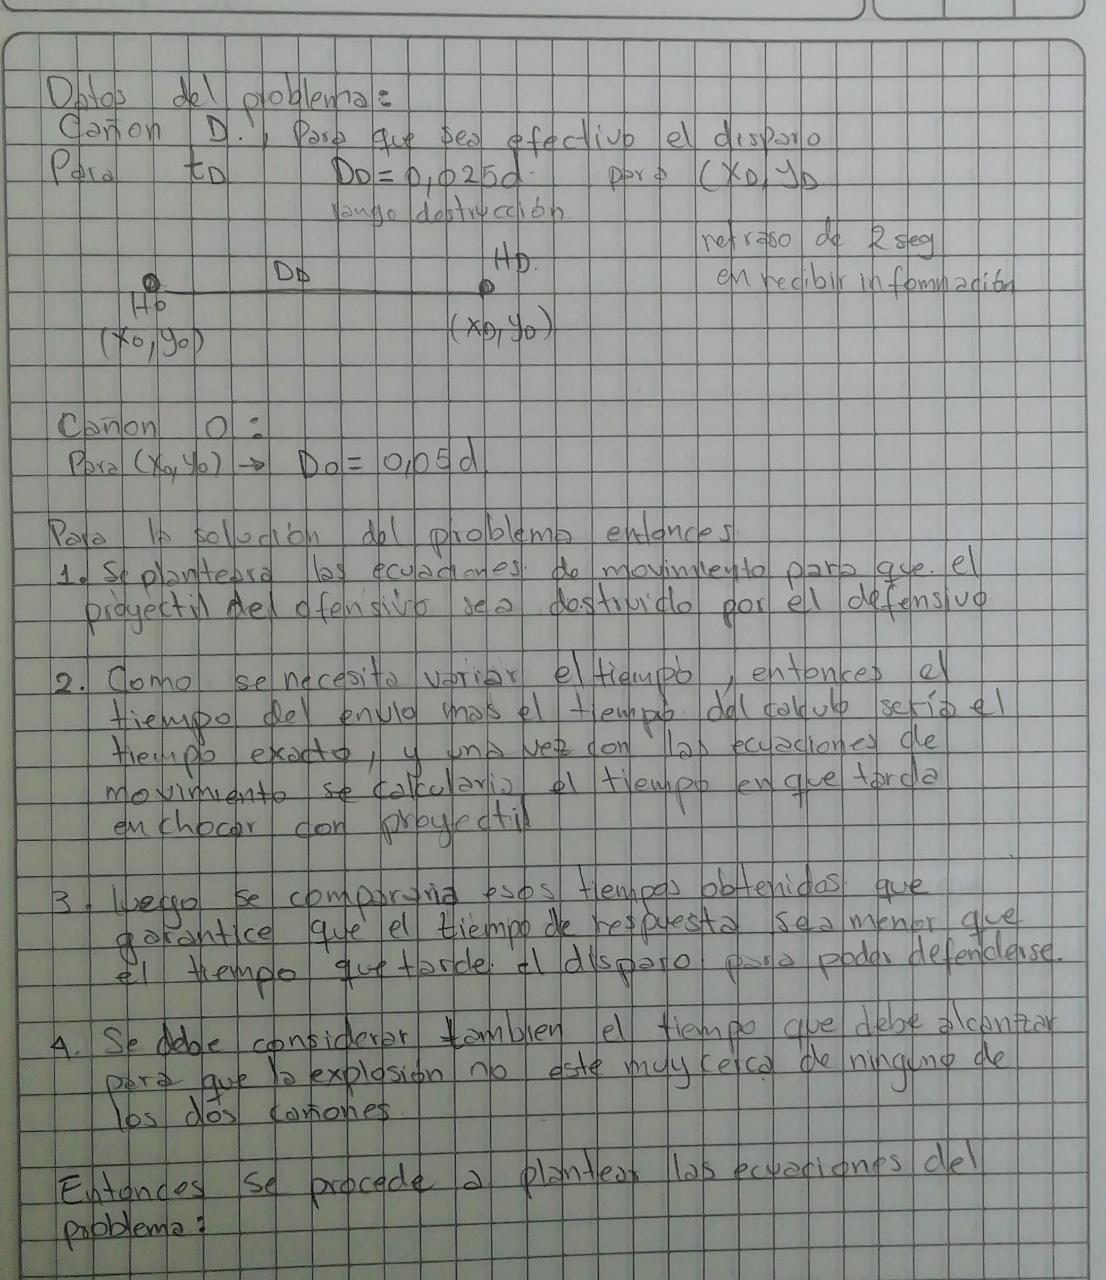 Datos del problema:
Cañon D., Para que sea efectivo el disparo
Para tD D0 = 0,025d para (XD, yD
rango destrucción
retraso de 2 seg
en recibir información
DD HD.
H0
(x0, y0) (xD, y0)
Cañon O:
Para (x0, y0) → D0 = 0,05d
Para la solución del problema entonces
1. Se planteara las ecuaciones de movimiento para que el
proyectil del ofensivo sea destruido por el defensivo
2. Como se necesita variar el tiempo, entonces el
tiempo del envio mas el tiempo del calculo sería el
tiempo exacto, y una vez con las ecuaciones de
movimiento se calcularia el tiempo en que tarda
en chocar con proyectil
3. Luego se compararia esos tiempos obtenidos que
garantice que el tiempo de respuesta sea menor que
el tiempo que tarde el disparo para poder defenderse.
4. Se debe considerar tambien el tiempo que debe alcanzar
para que la explosión no este muy cerca de ninguno de
los dos cañones
Entonces se procede a plantear las ecuaciones del
problema: